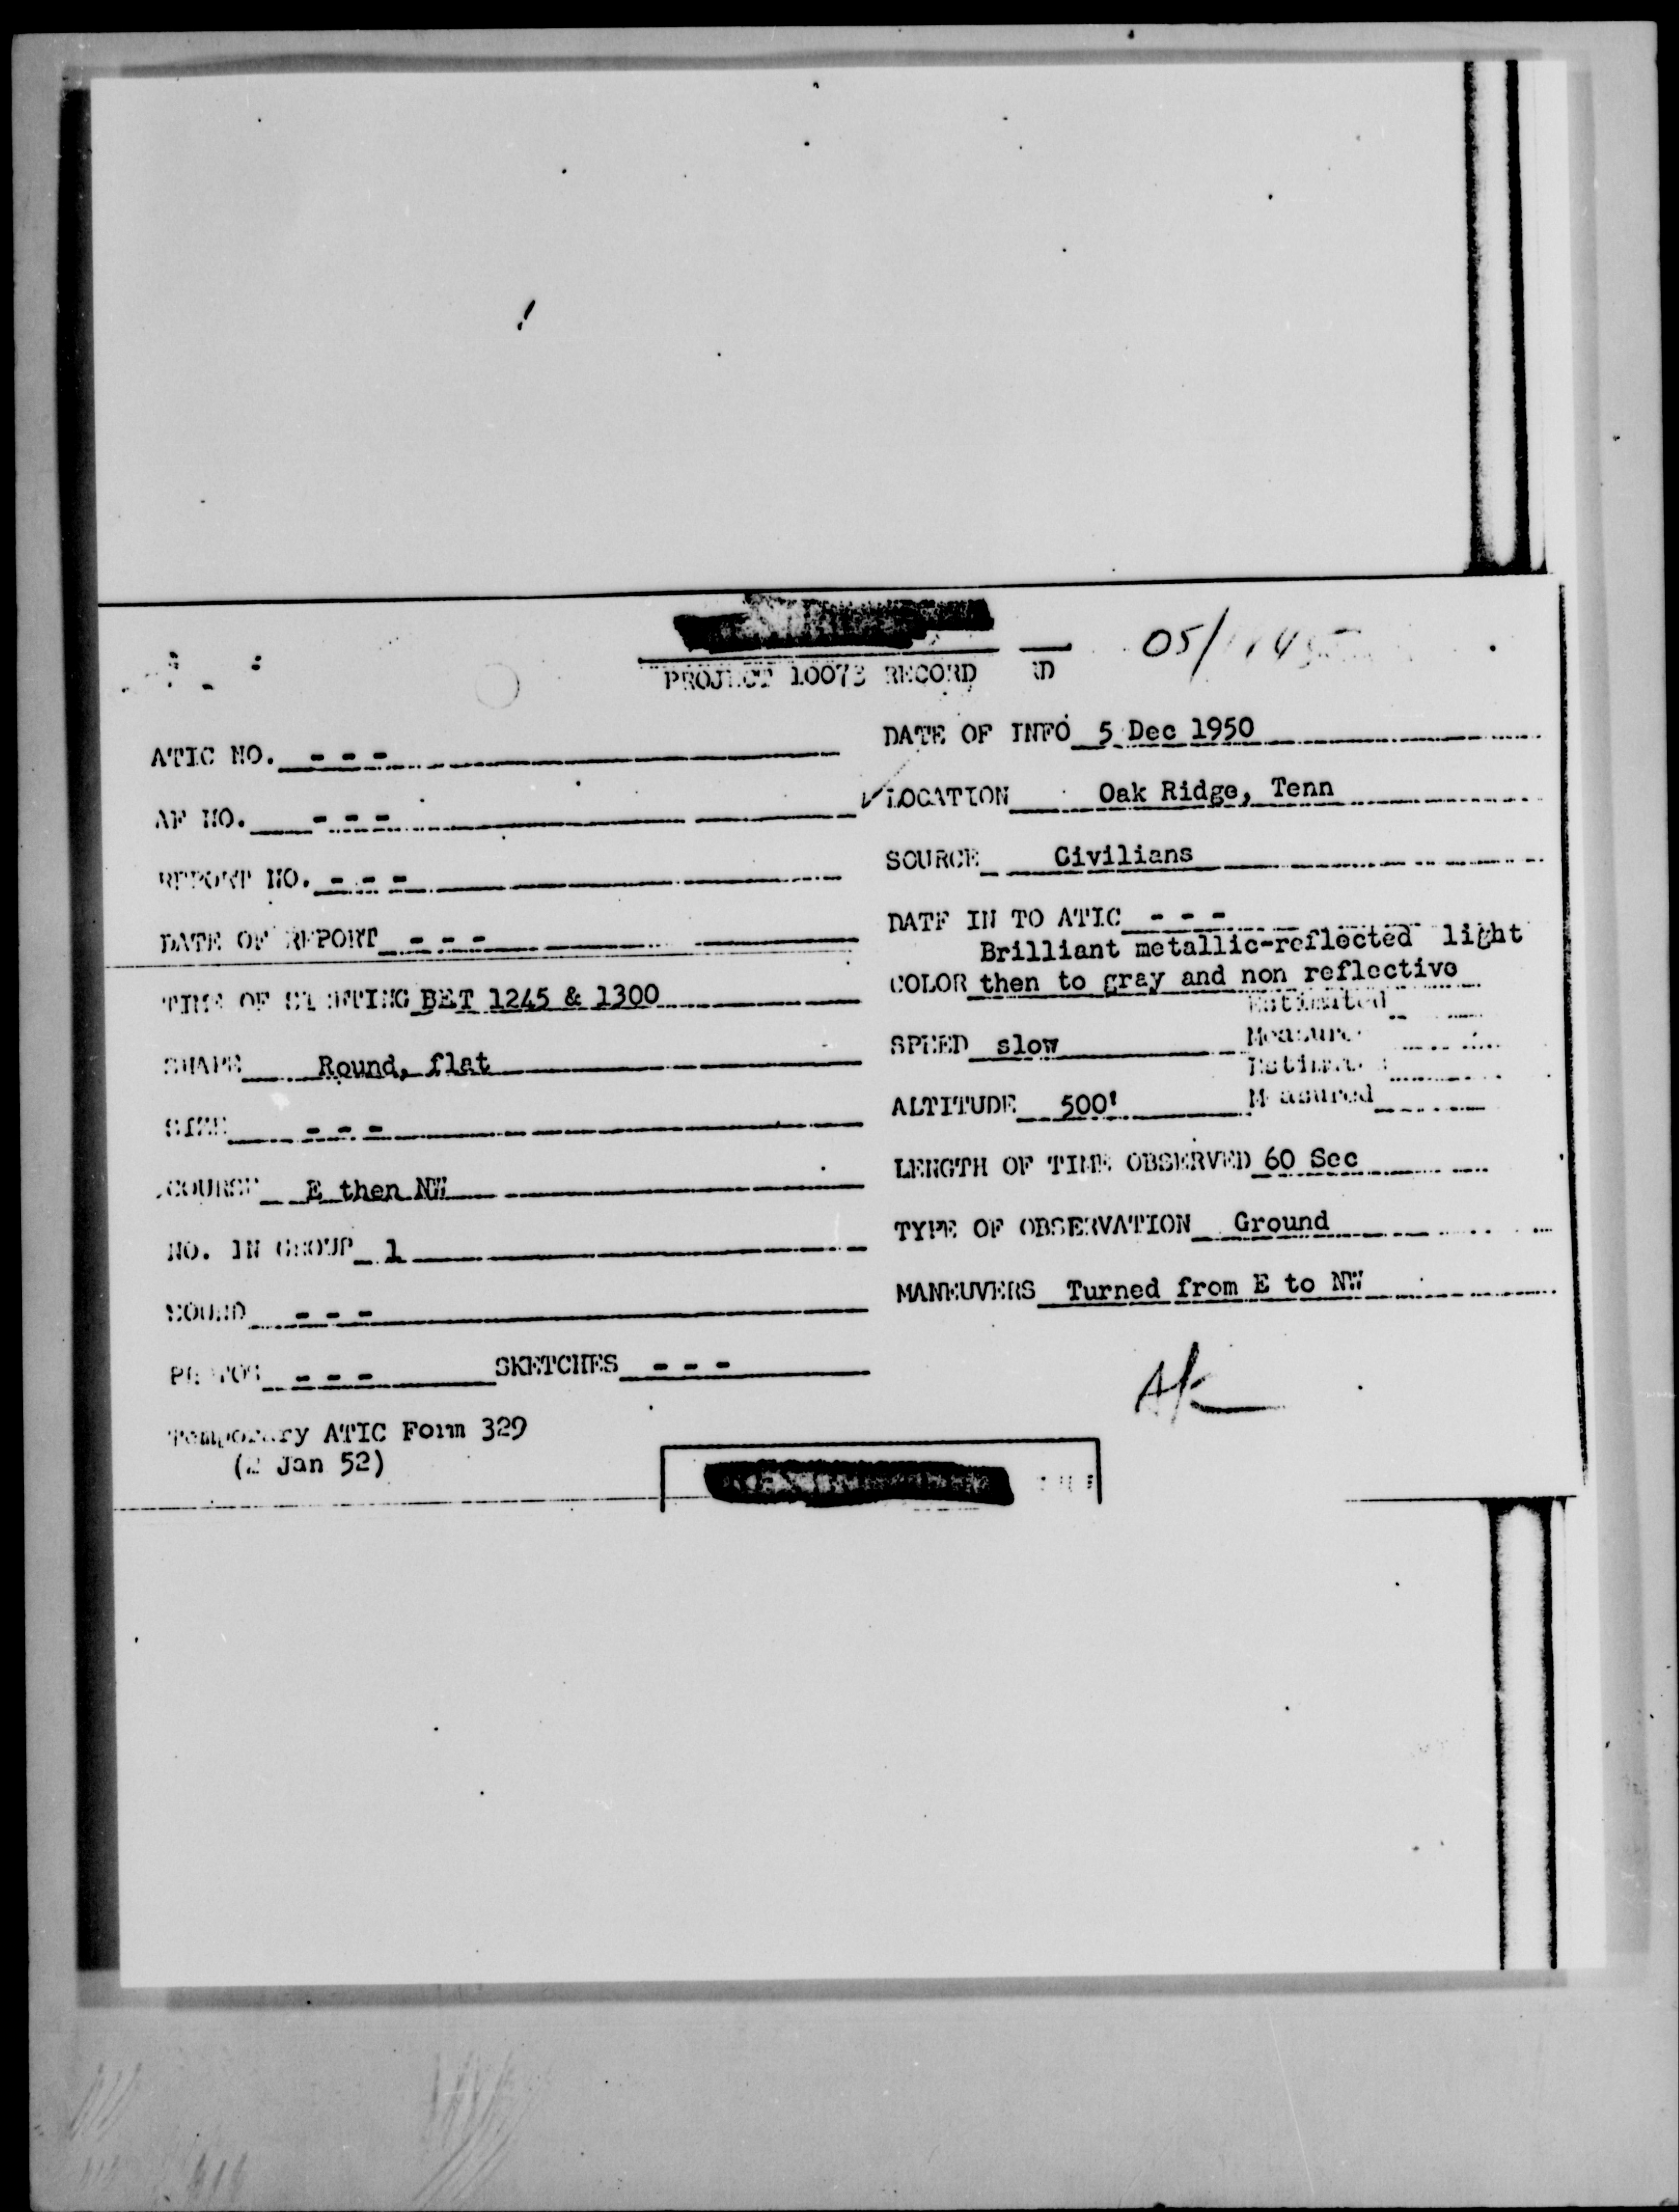 PROJECT 10073 RECORD
05/
ATIC NO. - - -
AF NO. - - -
REPORT NO. - - -
DATE OF REPORT - - -
TIME OF SIGHTING BET 1245 & 1300
SHAPE Round, flat
SIZE - - -
COURSE E then NW
NO. IN GROUP 1
SOUND - - -
PHOTOS - - - SKETCHES - - -
Temporary ATIC Form 329
(2 Jan 52)
DATE OF INFO 5 Dec 1950
LOCATION Oak Ridge, Tenn
SOURCE Civilians
DATE IN TO ATIC - - -
Brilliant metallic-reflected light
COLOR then to gray and non reflective
Estimated
SPEED slow Measured
Estimated
ALTITUDE 500' Measured
LENGTH OF TIME OBSERVED 60 Sec
TYPE OF OBSERVATION Ground
MANEUVERS Turned from E to NW